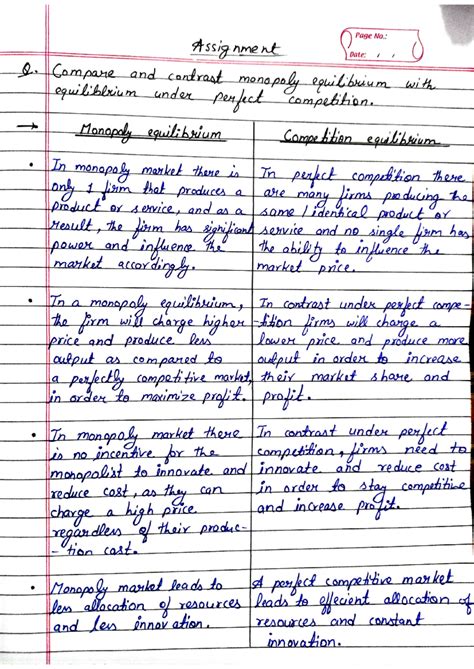 Page No.:
Date: / /
Assignment
Q. Compare and contrast monopoly equilibrium with
equilibrium under perfect competition.
→ Monopoly equilibrium
Competition equilibrium
• In monopoly market there is
only 1 firm that produces a
product or service, and as a
result, the firm has significant
power and influence the
market accordingly.
In perfect competition there
are many firms producing the
same / identical product or
service and no single firm has
the ability to influence the
market price.
• In a monopoly equilibrium,
the firm will charge higher
price and produce less
output as compared to
a perfectly competitive market,
in order to maximize profit.
In contrast under perfect compe-
tition firms will charge a
lower price and produce more
output in order to increase
their market share and
profit.
• In monopoly market there
is no incentive for the
monopolist to innovate and
reduce cost, as they can
charge a high price
regardless of their produc-
-tion cost.
In contrast under perfect
competition, firms need to
innovate and reduce cost
in order to stay competitive
and increase profit.
• Monopoly market leads to
less allocation of resources
and less innovation.
A perfect competitive market
leads to effecient allocation of
resources and constant
innovation.